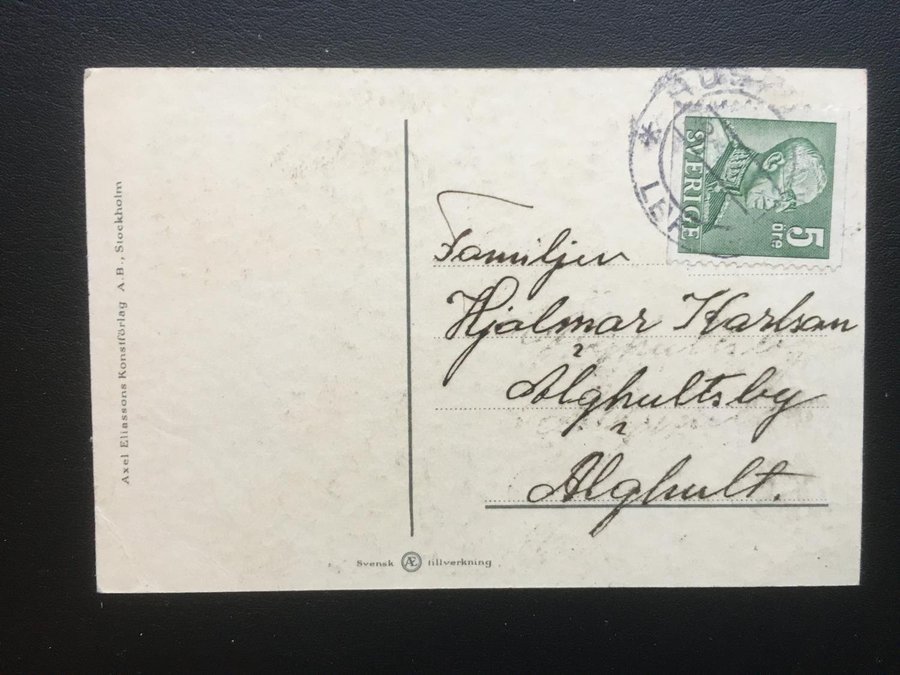 Axel Eliassons Konstförlag A.-B., Stockholm
SVERIGE
5
öre
Familjen
Hjalmar Karlsson
Älghultsby
Älghult.
Svensk Æ tillverkning